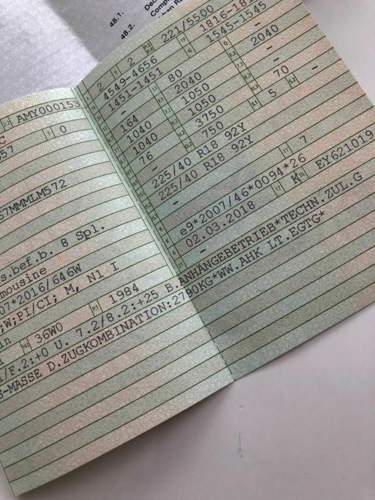 48.1.
48.2.
AMY000153
0
57MMMLM572
s.bef.b. 8 Spl.
mousine
07*2016/646W
;W;PI/CI; M, N1 I
36W0 1984
/F.2:+0 U. 7.2/8.2:+25 B.ANHANGEBETRIEB*TECHN.ZUL.G
S-MASSE D.ZUGKOMBINATION:2790KG*WW.AHK LT.EGTG*
2 2 221/5500
4549-4656
1451-1451 1545-1545
- 80 - 2040
164 2040 -
1040 1050 -
1040 1050 70 -
76 3750 5 -
- 750
225/40 R18 92Y
225/40 R18 92Y
-
-
e9*2007/46*0094*26 7
02.03.2018 K EY621019
-